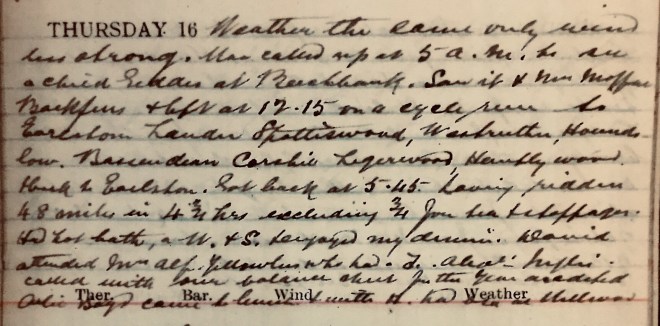 THURSDAY 16 Weather the same only wind
less strong. Was called up at 5 a.m. to see
a child Geddes at Beechbank. Saw it & Mrs Moffat
& left at 12.15 on a cycle run to
Earlston Lauder Spottiswood, Westruther, Hounds-
low. Bassendean Corsbie Legerwood,
Back to Earlston. Got back at 5.45 having ridden
48 miles in 4 3/4 hrs excluding 3/4 for tea & stoppages.
Had hot bath, a W. & S. & enjoyed my dinner. David
attended Mrs Alf. Yellowlees who had a
called with our balance sheet for the Year
Ther. Bar. Wind Weather
came to lunch